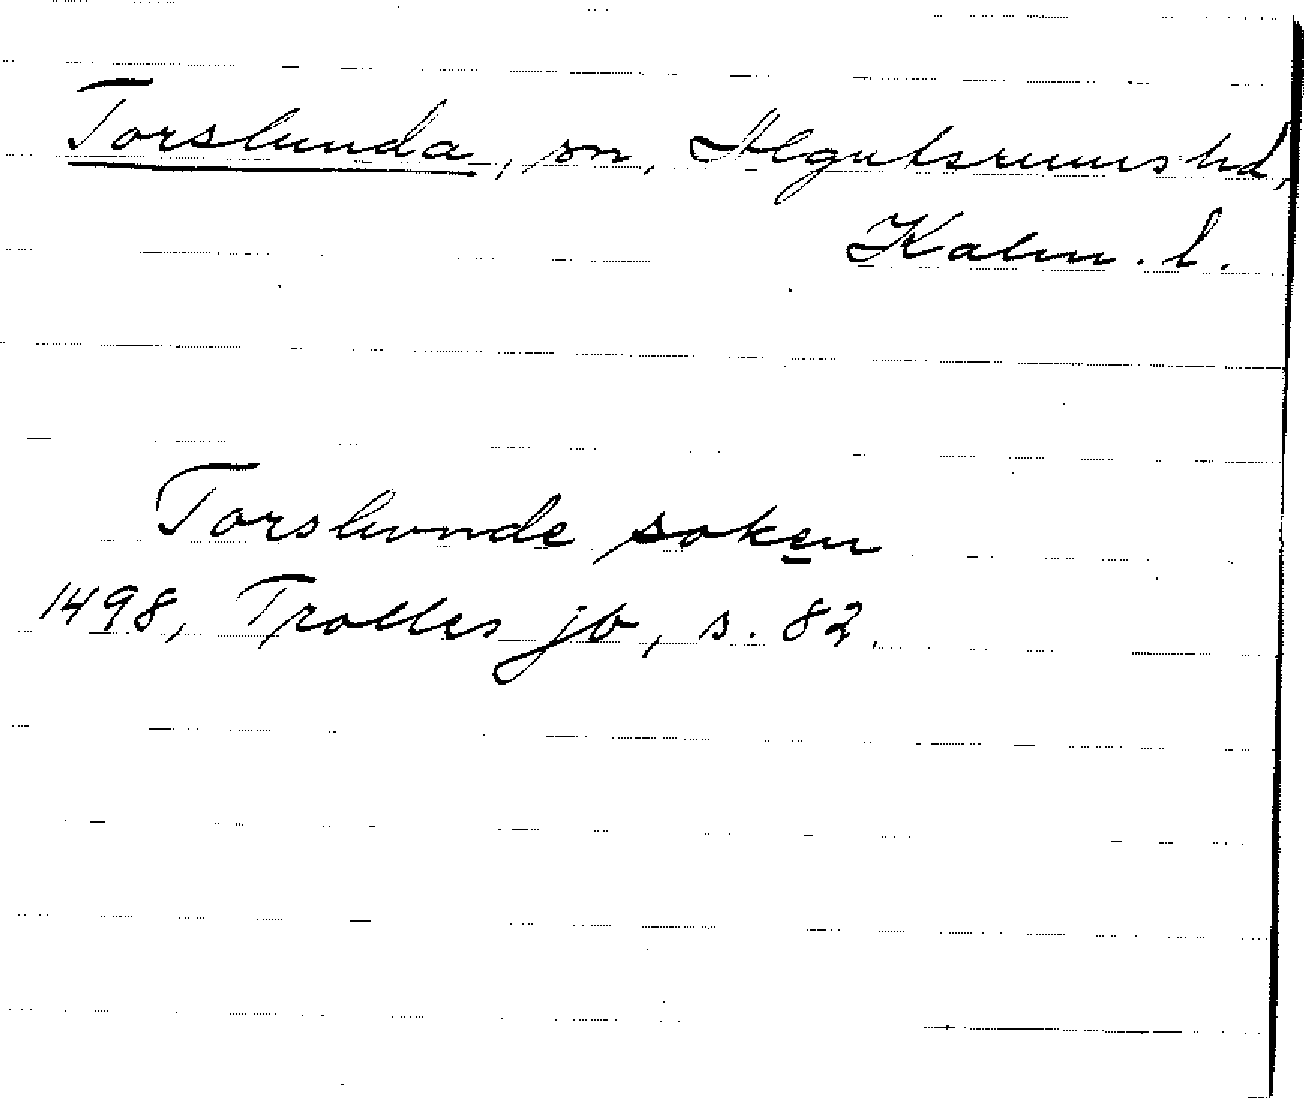 Torslunda, sn, Algutsrums hd,
Kalm. l.
Torslwnde soken
1498, Trolles jb, s. 82.